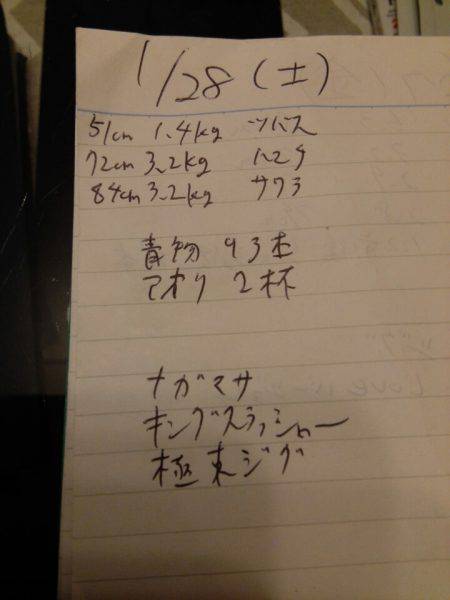 1/28(土)
51cm 1.4kg ツバス
72cm 3.2kg ハマチ
84cm 3.2kg サワラ
青物 93本
アオリ 2杯
ナガマサ
キングスラッシャー
極東ジグ